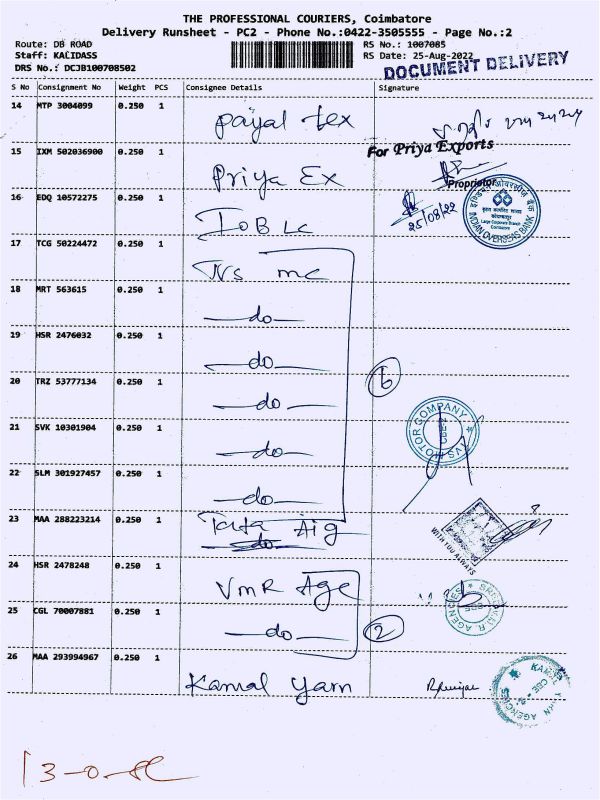 THE PROFESSIONAL COURIERS, Coimbatore
Delivery Runsheet - PC2 - Phone No.:0422-3505555 - Page No.:2
Route: DB ROAD
RS No.: 1007085
Staff: KALIDASS
RS Date: 25-Aug-2022
DRS No.: DCJB100708502
DOCUMENT DELIVERY
S No Consignment No Weight PCS Consignee Details Signature
14 MTP 3004099 0.250 1 Payal tex
For Priya Exports
15 IXM 502036900 0.250 1 Priya Ex
Proprietor
16 EDQ 10572275 0.250 1 IOB LC
25/08/22
इण्डियन ओवरसीज़ बैंक
Large Corporate Branch
Coimbatore
INDIAN OVERSEAS BANK
17 TCG 50224472 0.250 1 TVS mc
18 MRT 563615 0.250 1 —do—
19 HSR 2476032 0.250 1 —do—
20 TRZ 53777134 0.250 1 —do—
6
21 SVK 10301904 0.250 1 —do—
TVS MOTOR COMPANY
22 SLM 301927457 0.250 1 —do—
23 MAA 288223214 0.250 1 Tata Aig
WITH YOU ALWAYS
24 HSR 2478248 0.250 1 VMR Age
25 CGL 70007881 0.250 1 —do—
2
26 MAA 293994967 0.250 1 Kamal Yarn